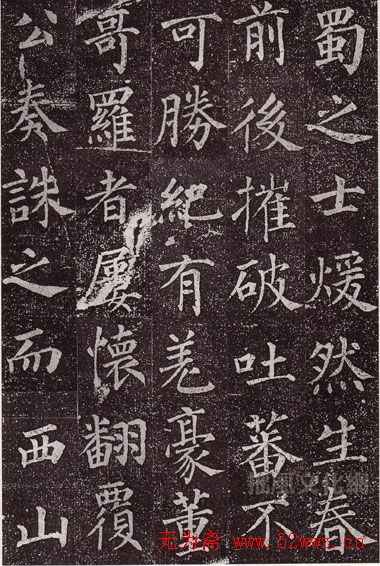 蜀之士煖然生春
前後摧破吐蕃不
可勝紀有羌豪董
哥羅者屢懷翻覆
公奏誅之而西山
无为斋 www.52wwz.cn